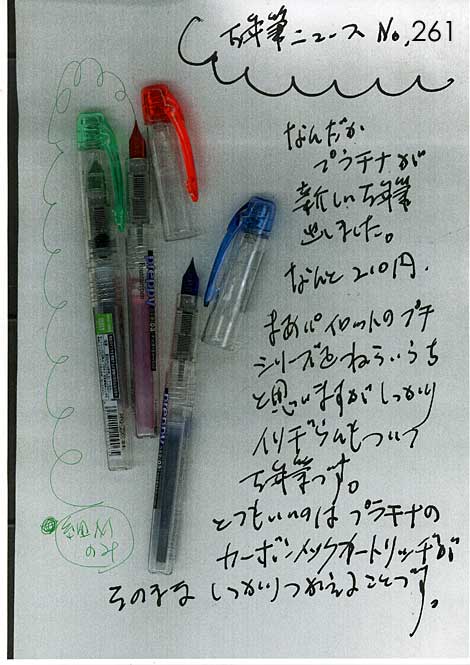 万年筆ニュース No,261
なんだか
プラチナが
新しい万年筆
出しました。
なんと210円.
まあパイロットのプチ
シリーズをねらいうち
と思いますがしっかり
イリヂウムもついて
万年筆です。
とってもいいのはプラチナの
カーボンインクカートリッヂが
そのまま しっかりつかえることです。
preppy
preppy
細字
のみ